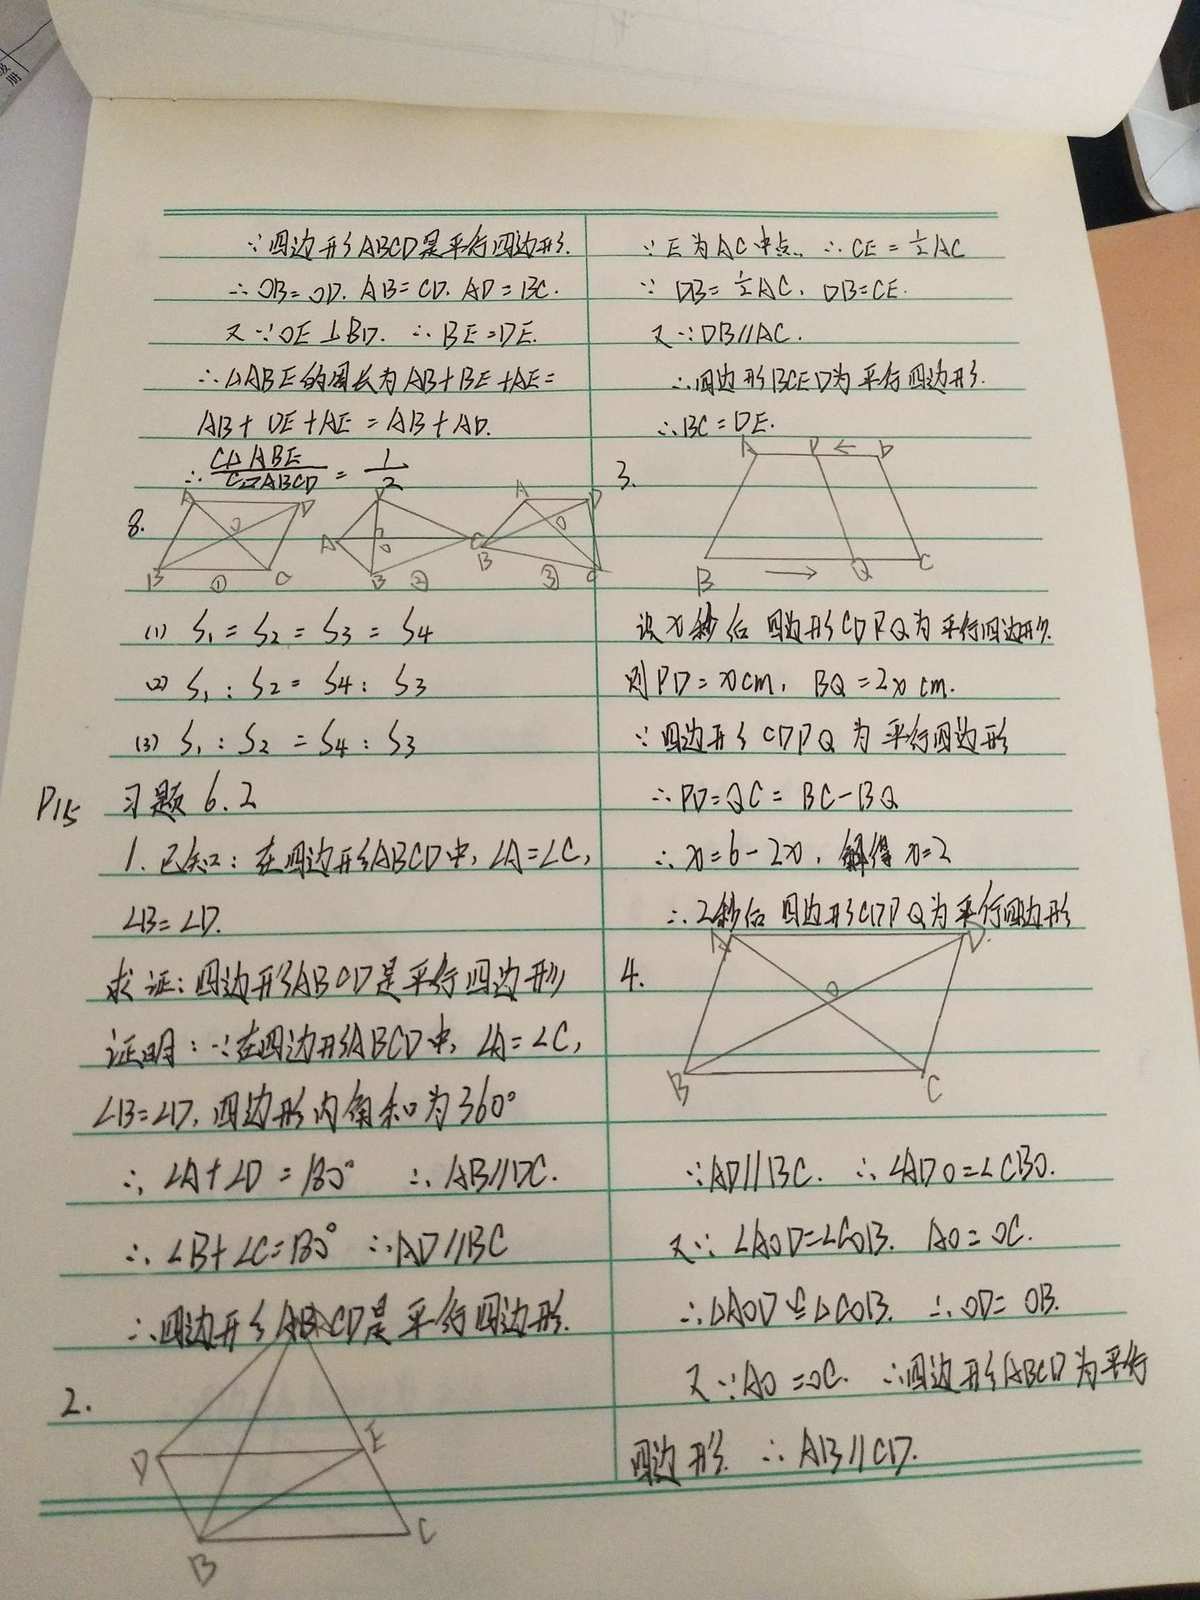 ∵四边形ABCD是平行四边形.
∴OB=OD. AB=CD. AD=BC.
又∵OE⊥BD. ∴BE=DE.
∴△ABE的周长为AB+BE+AE=
AB+DE+AE=AB+AD.
∴C△ABE/C▱ABCD=1/2
8.
A D O B C ①
A D O B C ②
A D O B C ③
(1) S1=S2=S3=S4
(2) S1:S2=S4:S3
(3) S1:S2=S4:S3
P115 习题 6.2
1.已知:在四边形ABCD中,∠A=∠C,
∠B=∠D.
求证:四边形ABCD是平行四边形
证明:∵在四边形ABCD中,∠A=∠C,
∠B=∠D,四边形内角和为360°
∴∠A+∠D=180° ∴AB//DC.
∴∠B+∠C=180° ∴AD//BC
∴四边形ABCD是平行四边形.
2.
A
D E
B C
∵E为AC中点, ∴CE=½AC
∵DB=½AC, DB=CE.
又∵DB//AC.
∴四边形BCED为平行四边形.
∴BC=DE.
3.
A P ← D
B → Q C
设x秒后 四边形CDPQ为平行四边形.
则PD=xcm, BQ=2xcm.
∵四边形CDPQ为平行四边形
∴PD=QC=BC-BQ
∴x=6-2x, 解得x=2
∴2秒后 四边形CDPQ为平行四边形
4.
A D
O
B C
∵AD//BC. ∴∠ADO=∠CBO.
又∵∠AOD=∠COB. AO=OC.
∴△AOD≌△COB. ∴OD=OB.
又∵AO=OC. ∴四边形ABCD为平行
四边形. ∴AB//CD.